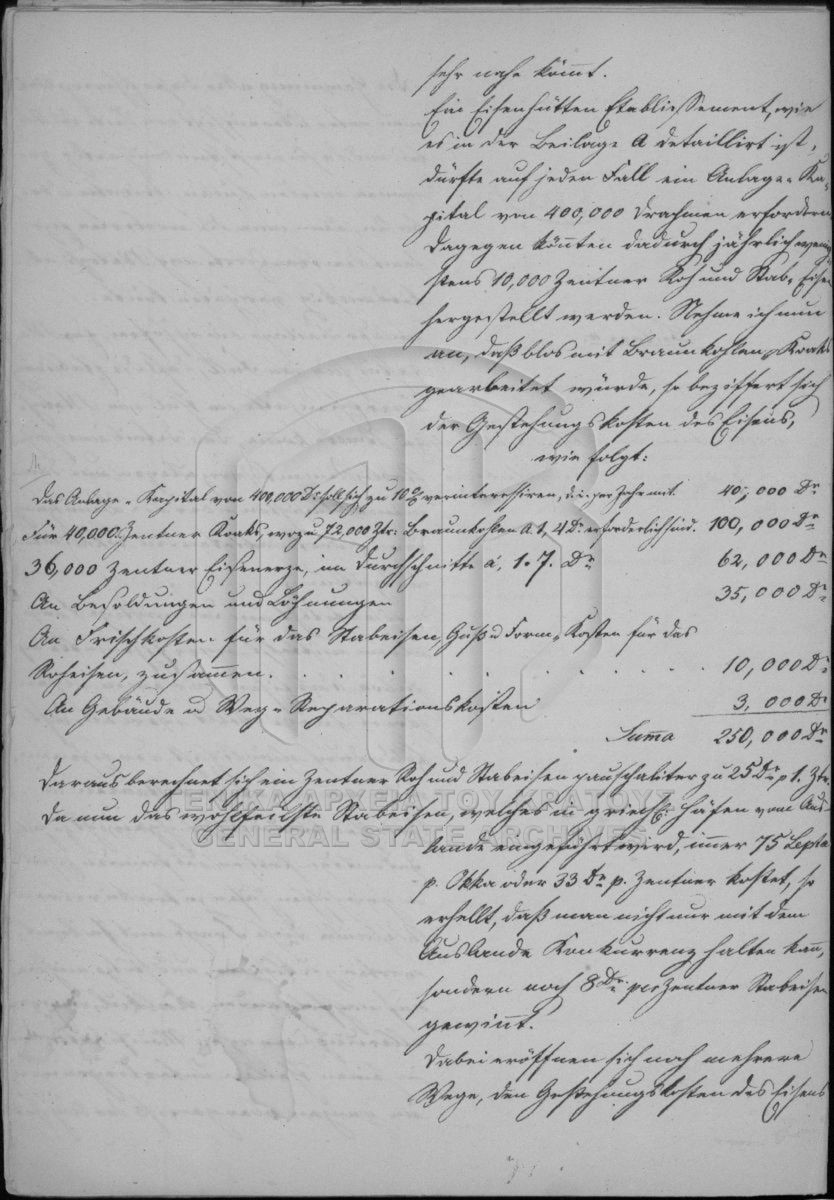 sehr nahe kömmt.
Ein Eisenhütten Etablissement, wie
es in der Beilage A detaillirt ist,
dürfte auf jeden Fall ein Anlage-Ka-
pital von 400,000 Drachmen erfordern
dagegen könnten dadurch jährlich wenig-
stens 10,000 Zentner Roh und Stab-Eisen
hergestellt werden. Nehme ich nun
an, daß blos mit Braunkohlen-Koaks
gearbeitet würde, so beziffert sich
der Gestehungskosten des Eisens,
wie folgt:
Das Anlage-Kapital von 400,000 Dr. soll sich zu 10 % verinteressiren, d. i. per Jahr mit. 40,000 Dr
Für 40,000 Zentner Koaks, wozu 72,000 Ztr: Braunkohlen a 1,4 Dr. erforderlich sind. 100,000 Dr
36,000 Zentner Eisenerze, im Durchschnitte á, 1.7. Dr 62,000 Dr
An Besoldungen und Löhnungen 35,000 Dr
An Frischkosten für das Stabeisen, Guß u Form-Kosten für das
Roheisen, zusammen. 10,000 Dr
An Gebäude u Weg-Reparationskosten 3,000 Dr
Summa 250,000 Dr
Daraus berechnet sich ein Zentner Roh und Stabeisen pauschaliter zu 25 Dr p 1. Ztr.
Da nun das wohlfeilste Stabeisen, welches in griech: Häfen vom Aus-
lande eingeführt wird, immer 75 Lepta
p. Okka oder 33 Dr p. Zentner kostet, so
erhellt, daß man nicht nur mit dem
Auslande Konkurrenz halten kann,
sondern noch 8 Dr. per Zentner Stabeisen
gewinnt.
Dabei eröffnen sich noch mehrere
Wege, den Gestehungskosten des Eisens
ΓΕΝΙΚΑ ΑΡΧΕΙΑ ΤΟΥ ΚΡΑΤΟΥΣ
GENERAL STATE ARCHIVES